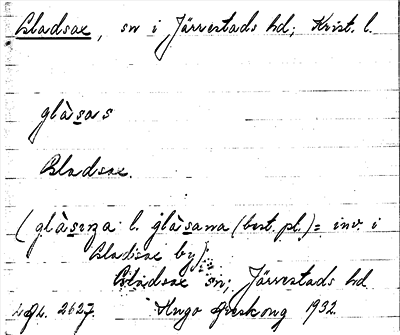 Gladsax, sn i Järrestads hd; Krist. l.
glàsas
Gladsax.
(glàsiza l. glàsana (best. pl.) = inv. i
Gladsax by).
Gladsax sn; Järrestads hd
2627. Hugo Areskoug 1932.